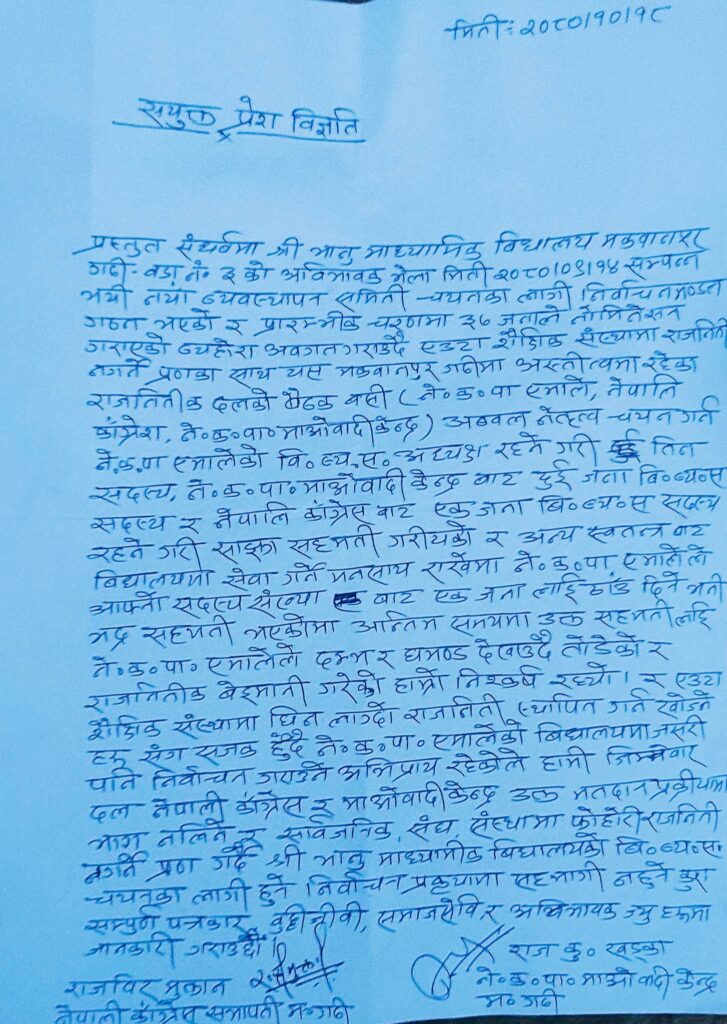 मिती: २०८०।१०।१८
सयुक्त प्रेश विज्ञप्ति
प्रस्तुत संधर्वमा श्री भानु माध्यामिक विद्यालय मकवानपुर
गढी- वडा नं. ३ को अविभावक भेला मिती २०८०।०९।१४ सम्पन्न
भयी तथा व्यवस्थापन समिती चयनका लागी निर्वाचन मण्डल
गठन भएको र प्रारम्भीक चरणमा ३७ जनाले नोमिनेसन
गराएको व्यहोरा अवगत गराउदै एउटा शैक्षिक संस्थामा राजनिती
नगर्ने प्रणका साथ यस मकवानपुर गढीमा अस्तीत्वमा रहेका
राजनितीक दलको बैठक बसी (ने.क.पा एमाले, नेपालि
कांग्रेश, ने.क.पा.माओवादी केन्द्र) अब्बल नेतृत्व चयन गर्न
ने.क.पा एमालेको वि.व्य.स. अध्यक्ष रहने गरी तिन
सदस्य, ने.क.पा.माओवादी केन्द्र बाट दुई जना बि.व्य.स
सदस्य र नेपालि कांग्रेस बाट एक जना बि.व्य.स सदस्य
रहने गरी साझा सहमती गरीयको र अन्य स्वतन्त्र बाट
बिद्यालयमा सेवा गर्ने मनसाय राखेमा ने.क.पा एमालेले
आफ्नो सदस्य संख्या बाट एक जना लाई ठाँउ दिने भनी
भद्र सहमती भएकोमा अन्तिम समयमा उक्त सहमती लाई
ने.क.पा.एमालेले दम्भ र घमण्ड देखाउदै तोडेको र
राजनितीक बेइमानी गरेको हाम्रो निश्कर्ष रह्यो। र एउटा
शैक्षिक संस्थामा घिन लाग्दो राजनिती स्थापित गर्न खोज्ने
हरु संग सजक हुँदै ने.क.पा.एमालेको बिद्यालयमा जसरी
पनि निर्वाचन गराउने अभिप्राय रहेकोले हामी जिम्मेवार
दल नेपाली कांग्रेस र माओवादी केन्द्र उक्त मतदान प्रकीयामा
भाग नलिने र सार्वजनिक, संघ, संस्थामा फोहोरी राजनिती
नगर्ने प्रण गर्दै श्री भानु माध्यामीक विद्यालयको बि.व्य.स.
चयनका लागी हुने निर्वाचन प्रकृयामा सहभागी नहुने कुरा
सम्पुर्ण पत्रकार, वुद्दीजीवी, समाजसेवि र अविभावक ज्यु हरुमा
जानकारी गराउदछौं।
राजविर मुक्तान
नेपाली कांग्रेस सभापती म.गढी
राज कु. खड्का
ने.क.पा.माओवादी केन्द्र
म.गढी